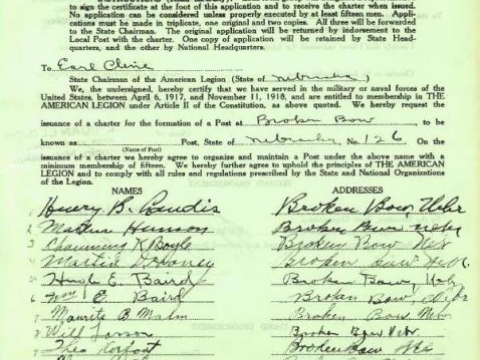 sign to the certificate at the foot of this application and to receive the charter when issued.
No application can be considered unless properly executed by at least fifteen men. Appli-
cations must be made in triplicate, one original and two copies. All three will be forwarded
to the State Chairman. The original application will be returned by indorsement to the
Local Post with the charter. One copy of application will be retained by State Head-
quarters, and the other by National Headquarters.
To Earl Cline
State Chairman of the American Legion (State of Nebraska)
We, the undersigned, hereby certify that we have served in the military or naval forces of the
United States, between April 6, 1917, and November 11, 1918, and are entitled to membership in THE
AMERICAN LEGION under Article II of the Constitution, as above quoted. We hereby request
issuance of a charter for the formation of a Post at Broken Bow to be
known as Post, State of Nebraska No 126 On the
(Name of Post)
issuance of a charter we hereby agree to organize and maintain a Post under the above name with a
minimum membership of fifteen. We hereby further agree to uphold the principles of THE AMERICAN
LEGION and to comply with all rules and regulations prescribed by the State and National Organizations
of the Legion.
NAMES ADDRESSES
Henry B. Landis Broken Bow, Nebr
2 Broken Bow Nebr
3 Channing K Boyle Broken Bow Neb
4 Martin Broken Bow Nebr.
Hugh E. Baird Broken Bow, Neb
6 Wm E. Baird Broken Bow, Nebr
7 Maurits B Malm Broken Bow, Nebr
8 Will Larson Broken Bow Nebr
Theo Broken Bow